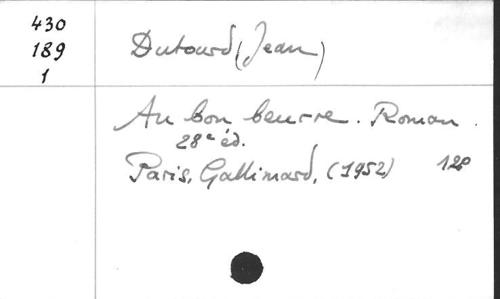 430
189
1
Dutourd (Jean)
Au bon beurre. Roman.
28e éd.
Paris, Gallimard, (1952) 12º